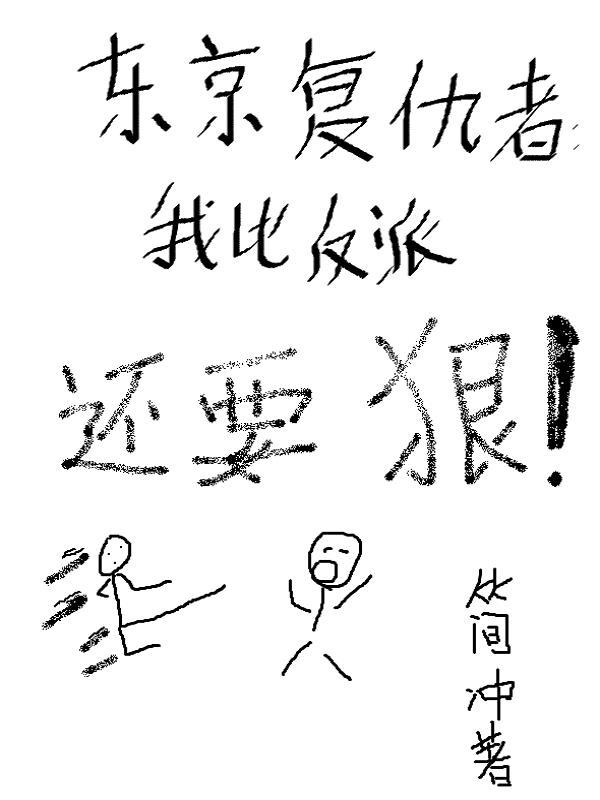 东京复仇者
我比反派
还要狠!
简冲著